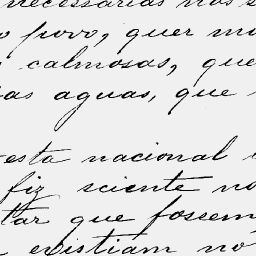 necessarias nos
povo, quer
calmosas, que
as aguas, que
esta nacional
fiz sciente no
tar que fossem
existiam no